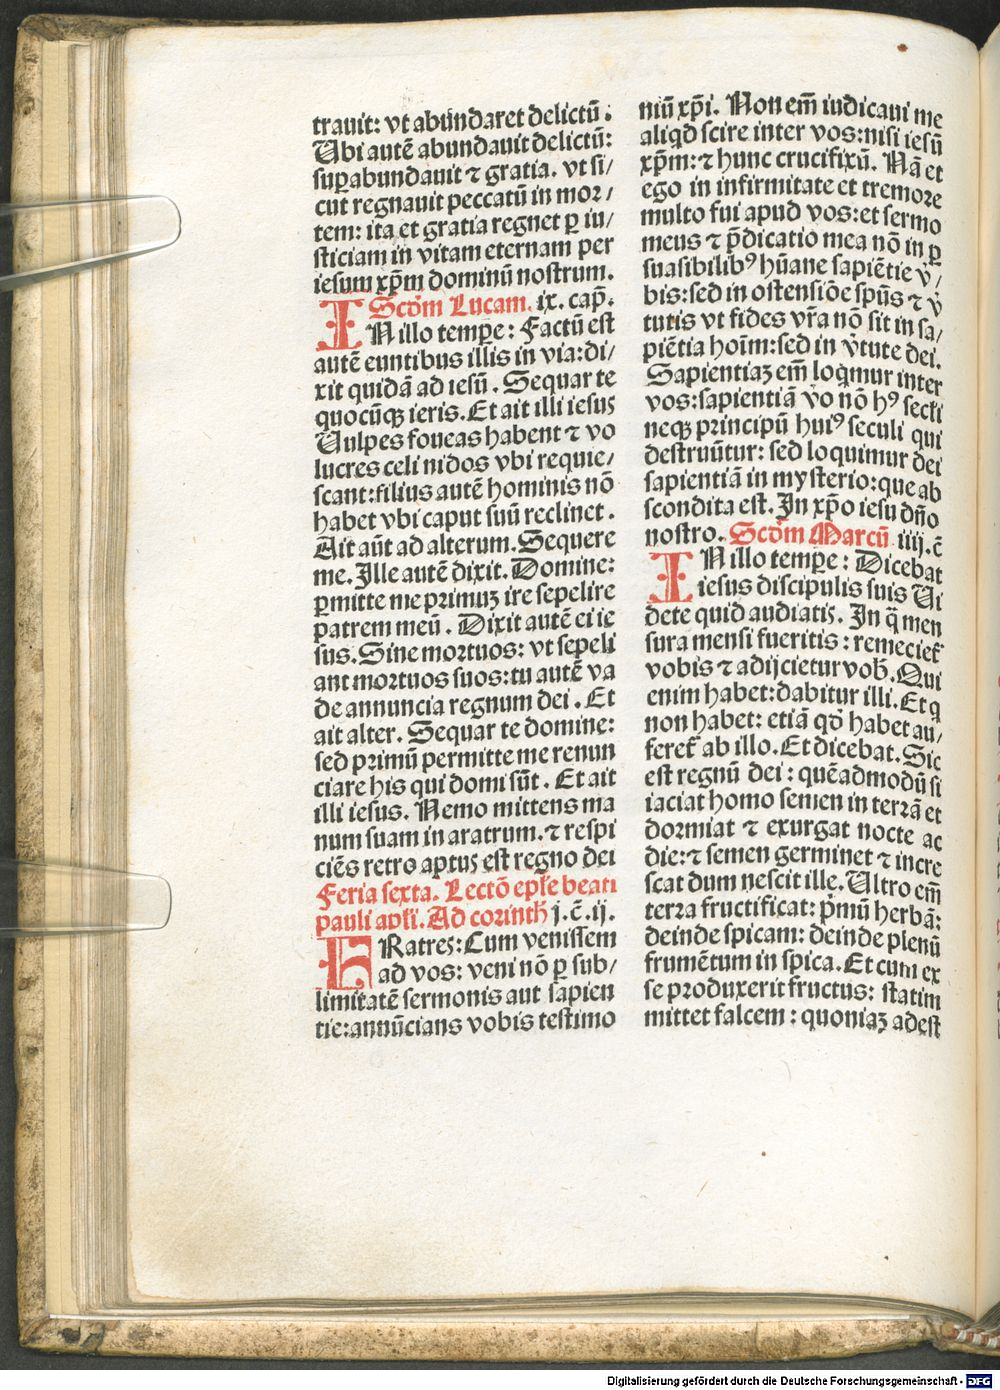 trauit: vt abundaret delictū.
Vbi autē abundauit delictū:
suꝑabundauit ⁊ gratia. vt si/
cut regnauit peccatū in mor/
tem: ita et gratia regnet ꝑ iu/
sticiam in vitam eternam per
iesum xp̄m dominū nostrum.
Scd̄m Lucam. ix. cap̄.
IN illo temꝑe: Factū est
autē euntibus illis in via: di/
xit quidā ad iesū. Sequar te
quocūqꝫ ieris. Et ait illi iesus
Vulpes foueas habent ⁊ vo
lucres celi nidos vbi requie/
scant: filius autē hominis nō
habet vbi caput suū reclinet.
Ait aūt ad alterum. Sequere
me. Ille autē dixit. Domine:
ꝑmitte me primuꝫ ire sepelire
patrem meū. Dixit autē ei ie
sus. Sine mortuos: vt sepeli
ant mortuos suos: tu autē va
de annuncia regnum dei. Et
ait alter. Sequar te domine:
sed primū permitte me renun
ciare his qui domi sūt. Et ait
illi iesus. Nemo mittens ma
num suam in aratrum. ⁊ respi
ciēs retro aptus est regno dei
Feria sexta. Lectō ep̄ɫe beati
pauli apɫi. Ad corinth̄ j. c̄. ij.
FRatres: Cum venissem
ad vos: veni nō ꝑ sub/
limitatē sermonis aut sapien
tie: annūcians vobis testimo
niū xp̄i. Non em̄ iudicaui me
aliqd scire inter vos: nisi iesū
xp̄m: ⁊ hunc crucifixū. Nā et
ego in infirmitate et tremore
multo fui apud vos: et sermo
meus ⁊ p̄dicatio mea nō in ꝑ
suasibilibꝰ hūane sapiētie v̓/
bis: sed in ostensiōe sp̄us ⁊ v̓
tutis vt fides vr̄a nō sit in sa/
piētia hoīm: sed in v̓tute dei.
Sapientiaꝫ em̄ loq̄mur inter
vos: sapientiā v̓o nō hꝰ secɫi
neqꝫ principū huiꝰ seculi qui
destruūtur: sed loquimur dei
sapientiā in mysterio: que ab
scondita est. In xp̄o iesu dn̄o
nostro. Scd̄m Marcū. iiij. c̄
IN illo temꝑe: Dicebat
iesus discipulis suis Vi
dete quid audiatis. In q̄ men
sura mensi fueritis: remecieꝉ
vobis ⁊ adijcietur vob̄. Qui
enim habet: dabitur illi. Et q
non habet: etiā qd̓ habet au/
fereꝉ ab illo. Et dicebat. Sic
est regnū dei: quēadmodū si
iaciat homo semen in terrā et
dormiat ⁊ exurgat nocte ac
die: ⁊ semen germinet ⁊ incre
scat dum nescit ille. Vltro em̄
terra fructificat: p̄mū herbā:
deinde spicam: deinde plenū
frumētum in spica. Et cum ex
se produxerit fructus: statim
mittet falcem: quoniaꝫ adest
Digitalisierung gefördert durch die Deutsche Forschungsgemeinschaft - DFG